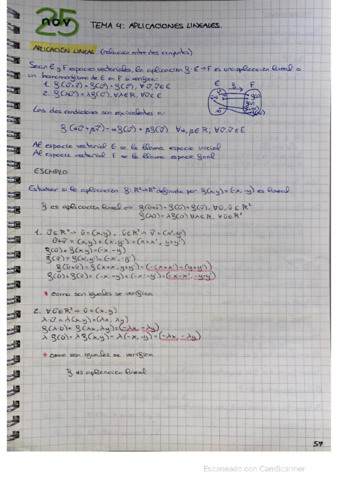 25
nov
TEMA 4: APLICACIONES LINEALES.
APLICACIÓN LINEAL (relaciones entre dos conjuntos)
Sean E y F espacios vectoriales, la aplicación f: E→F es una aplicación lineal o
un homomorfismo de E en F si verifica:
1. f(ū+v̄) = f(ū) + f(v̄), ∀ū, v̄ ∈ E
2. f(λū) = λf(ū), ∀λ∈R, ∀ū∈E
E f F
Las dos condiciones son equivalentes a:
f(αū+βv̄) = αf(ū) + βf(v̄) ∀α, β∈R, ∀ū, v̄∈E
Al espacio vectorial E se le llama espacio inicial
Al espacio vectorial F se le llama espacio final
EJEMPLO
Estudiar si la aplicación f: R²→R² definida por f(x,y)=(-x,-y) es lineal
f es aplicación lineal f(ū+v̄) = f(ū) + f(v̄), ∀ū, v̄∈R²
f(λū) = λf(ū) ∀λ∈R, ∀ū∈R²
1. ū∈R² → ū=(x,y), v̄∈R² → v̄=(x',y')
ū+v̄ = (x,y)+(x',y') = (x+x', y+y')
f(ū) = f(x,y)=(-x,-y)
f(v̄) = f(x',y')=(-x',-y')
f(ū+v̄) = f(x+x', y+y') = (-(x+x'), -(y+y'))
f(ū)+f(v̄) = (-x,-y)+(-x',-y') = (-x-x', -y-y')
* como son iguales se verifica
2. ∀ū∈R² → ū=(x,y)
λ·ū = λ(x,y)=(λx, λy)
f(λ·ū) = f(λx, λy) = (-λx, -λy)
λ f(ū) = λ f(x,y) = λ(-x,-y) = (-λx, -λy)
* como son iguales se verifica
f es aplicación lineal
57
Escaneado con CamScanner